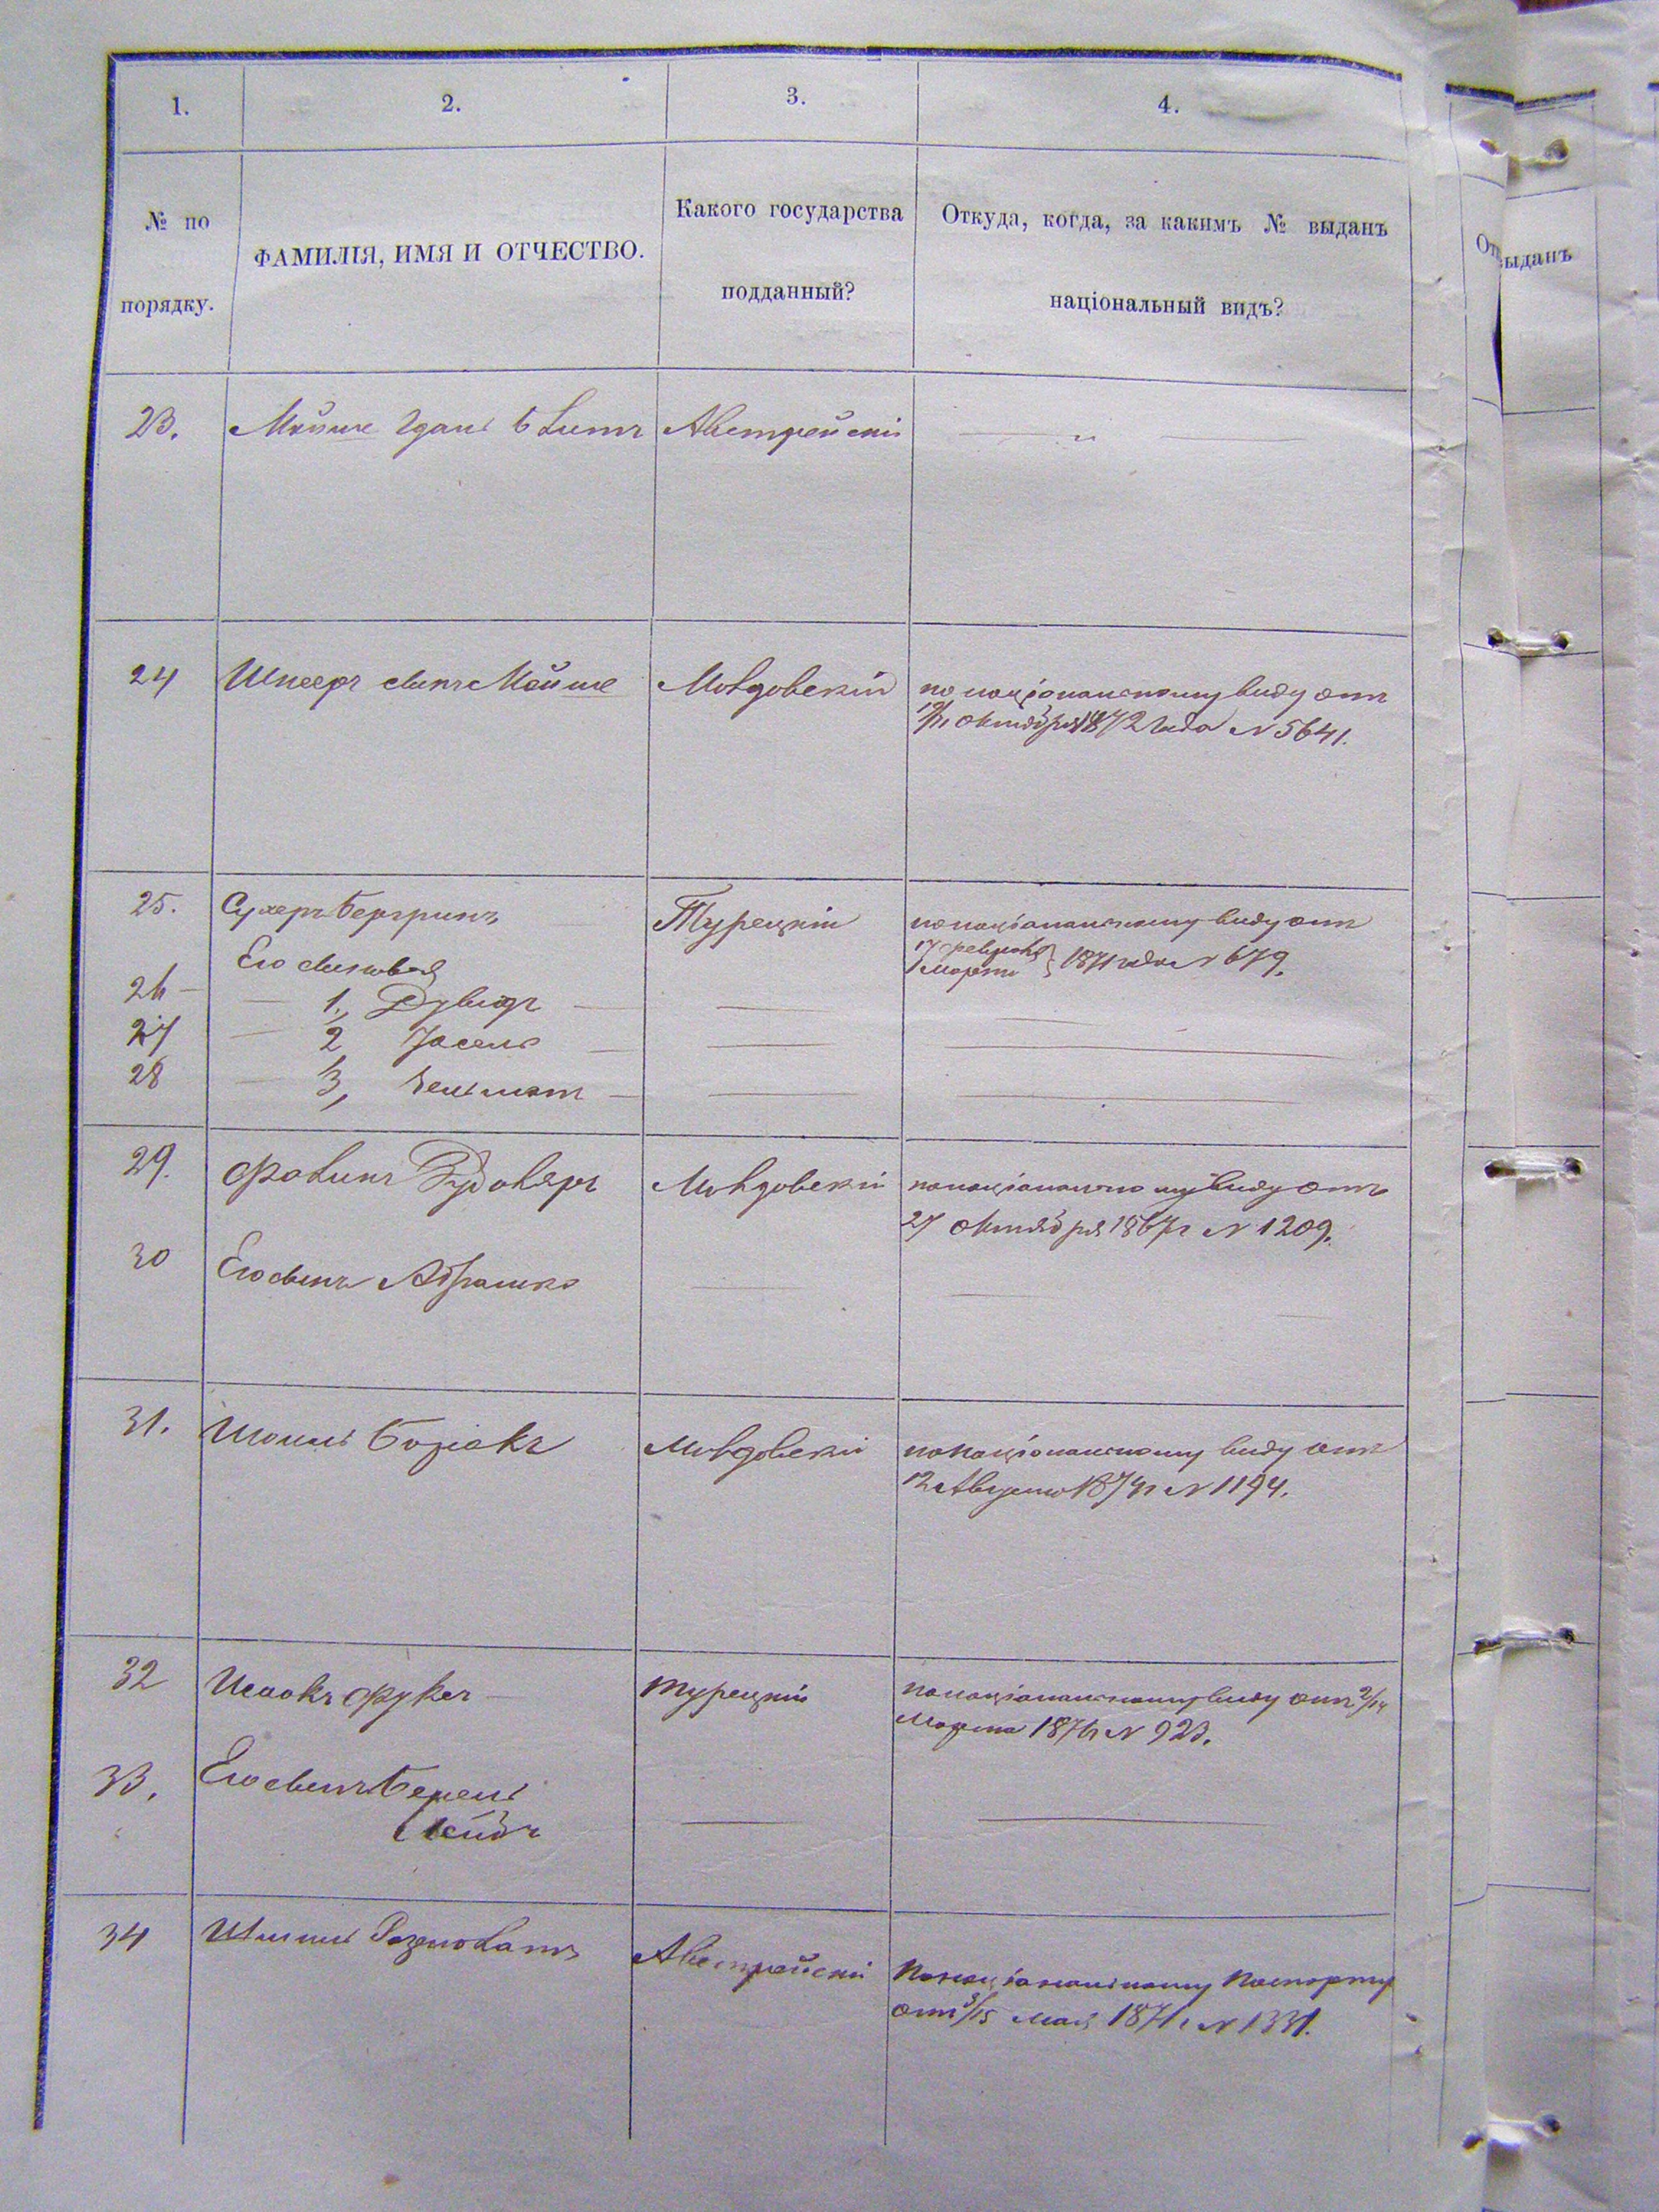 1. 2. 3. 4.
№ по порядку.
ФАМИЛІЯ, ИМЯ И ОТЧЕСТВО.
Какого государства подданный?
Откуда, когда, за какимъ № выданъ національный видъ?
ыданъ
23. Мойше Австрейскій
24 Шпееръ сынъ Мойше Молдовскій по національному виду отъ
Октября 1872 года N 5641.
25. Сухеръ Бергринъ Турецкій по національному виду отъ
17 февраля 1 марта } 1871 года N 679.
Его сыновья
26 — 1, Дувидъ
27 2 Іосель
28 3,
29. Молдовскій по національному виду отъ
27 Октября 1867 г N 1209.
30 Его сынъ Абрашко
31. Молдовскій по національному виду отъ
12 Августа 1871 г N 1194.
32 Исаакъ Фуксъ Турецкій по національному виду отъ 2/14
Марта 1871 г N 923.
33. Его сынъ Берель
Лейбъ
34 Австрейскій По національному паспорту
отъ 3/15 мая 1871 г N 1331.